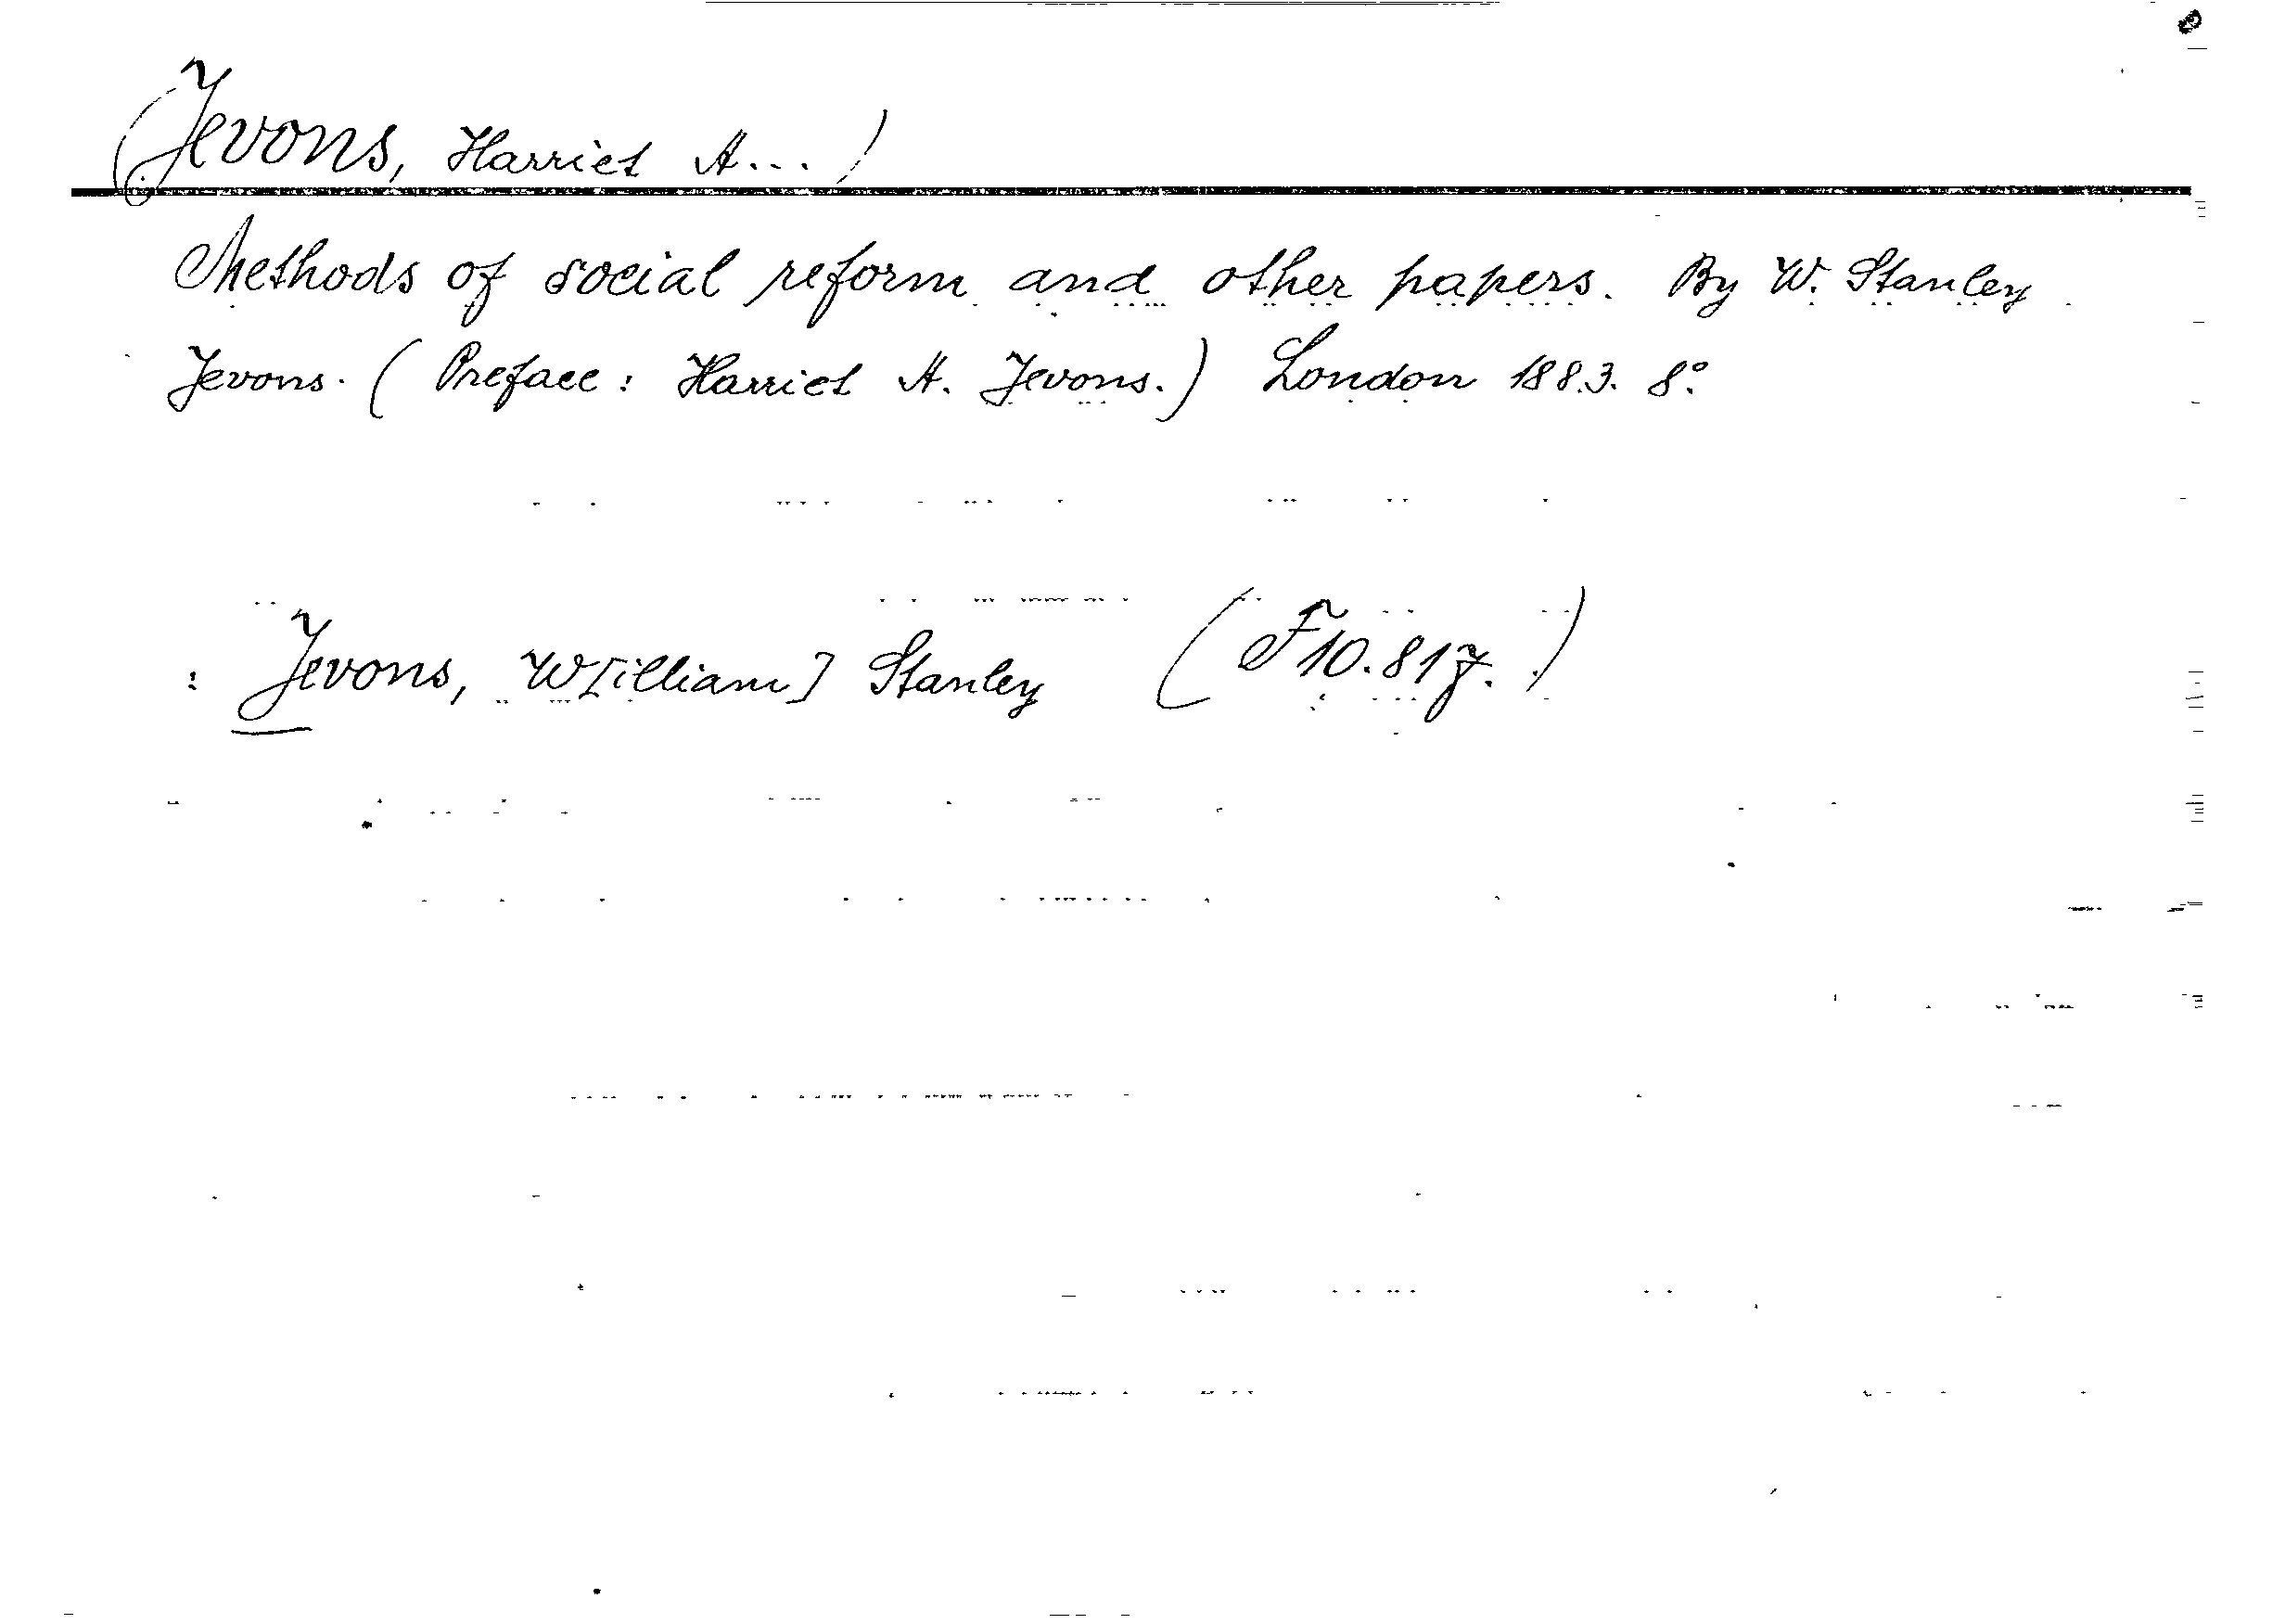 (Jevons, Harriet A...)
Methods of social reform and other papers. By W. Stanley
Jevons. (Preface: Harriet A. Jevons.) London 1883. 8°.
: Jevons, W[illiam] Stanley (F10.817.)